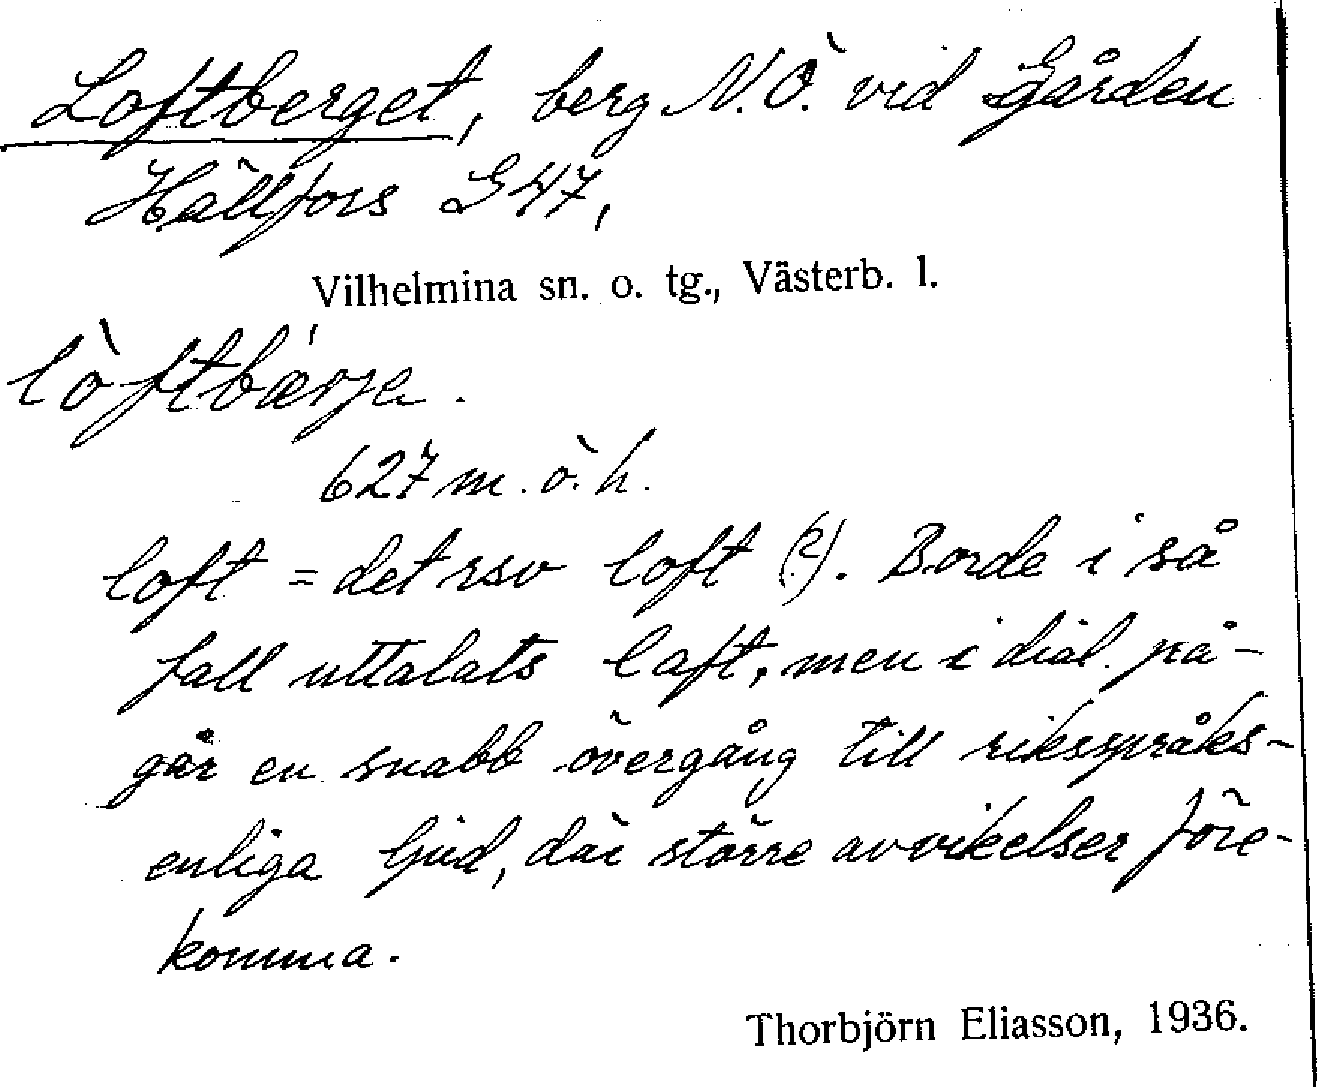 Loftberget, berg N.Ö. vid gården
Hällfors G47,
Vilhelmina sn. o. tg., Västerb. l.
lòftbærje.
627 m.ö.h.
loft = det rsv loft (?). Borde i så
fall uttalats laft, men i dial. på-
går en snabb övergång till riksspråks-
enliga ljud, där större avvikelser före-
komma.
Thorbjörn Eliasson, 1936.